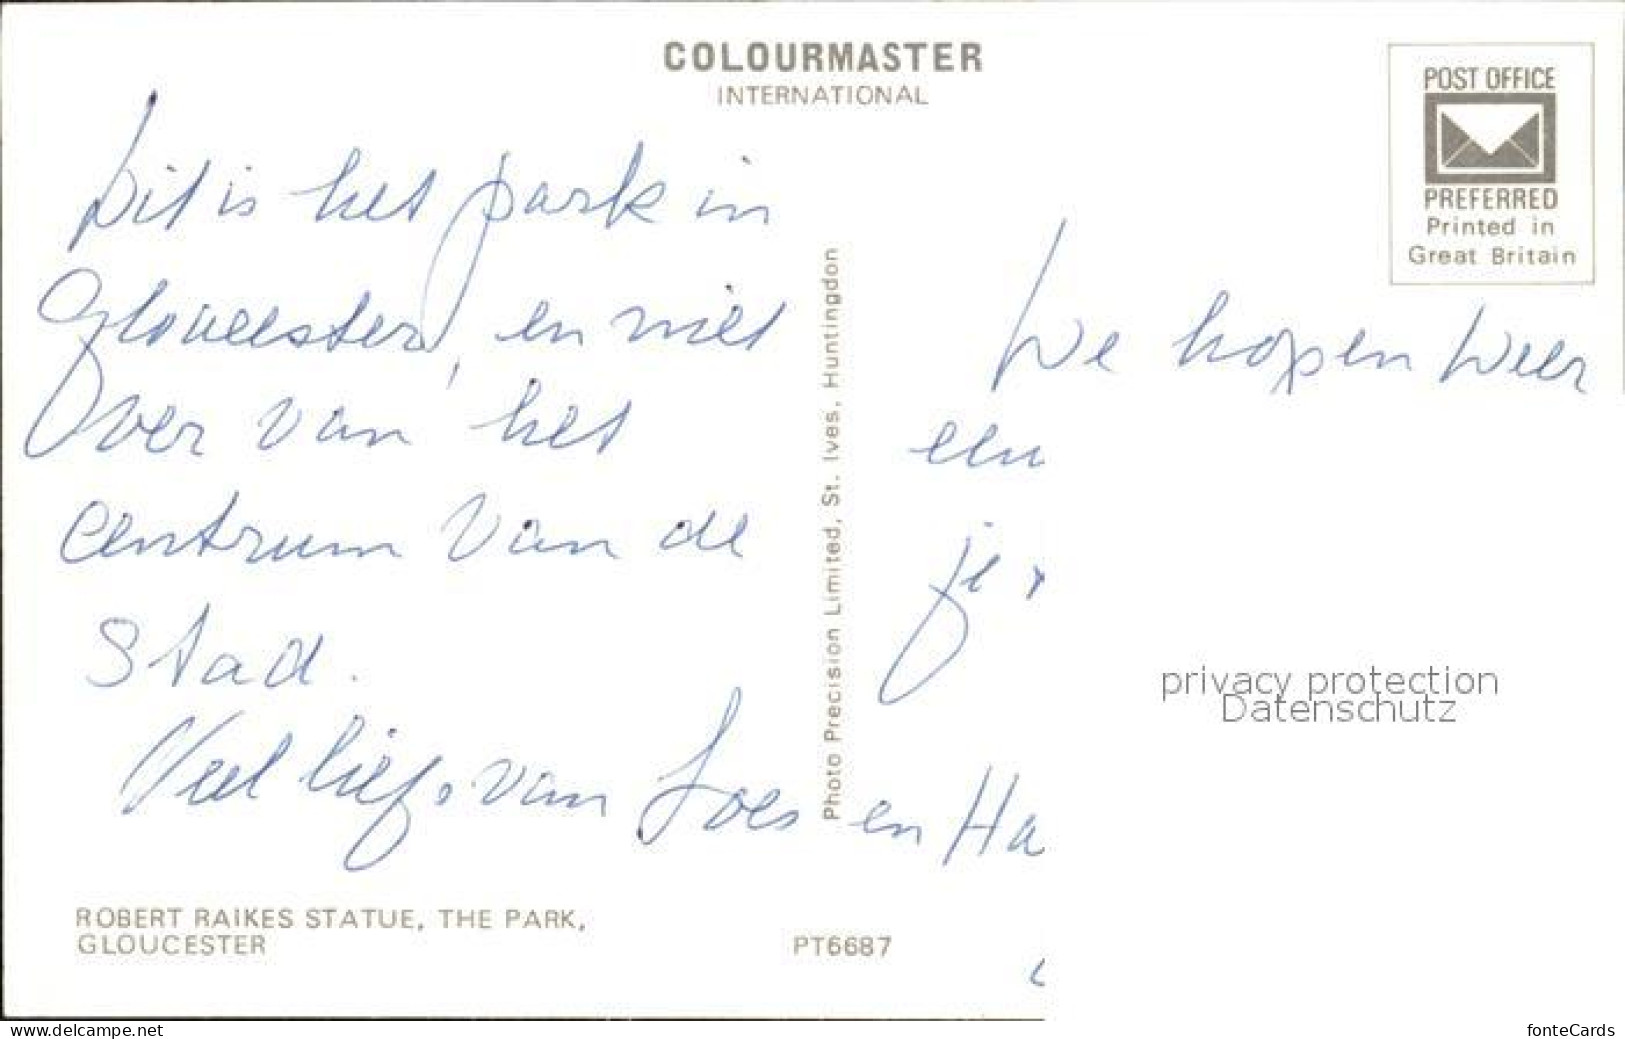 COLOURMASTER
INTERNATIONAL
POST OFFICE
PREFERRED
Printed in
Great Britain
Dit is het park in
Gloucester, en niet
Over van het
Centrum van de
Stad.
Veel liefs van Loes en Ha
We hopen weer
een
je
Photo Precision Limited, St. Ives, Huntingdon
privacy protection
Datenschutz
ROBERT RAIKES STATUE, THE PARK,
GLOUCESTER
PT6687
www.delcampe.net
fonteCards